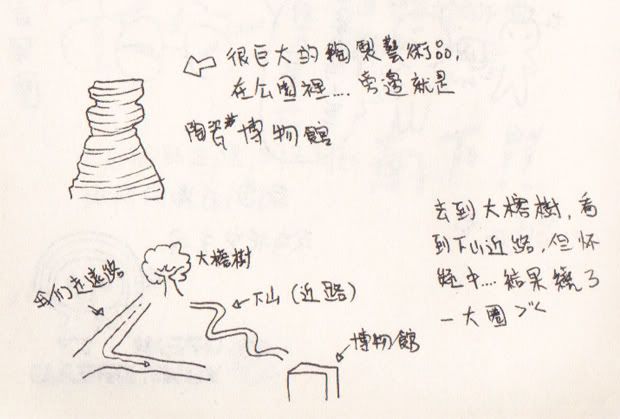 很巨大的陶製藝術品,
在公園裡.... 旁邊就是
陶瓷 博物館
去到大榕樹, 看
到下山近路, 但怀
疑中... 結果繞了
一大圈
大榕樹
我们走遠路
下山 (近路)
博物館